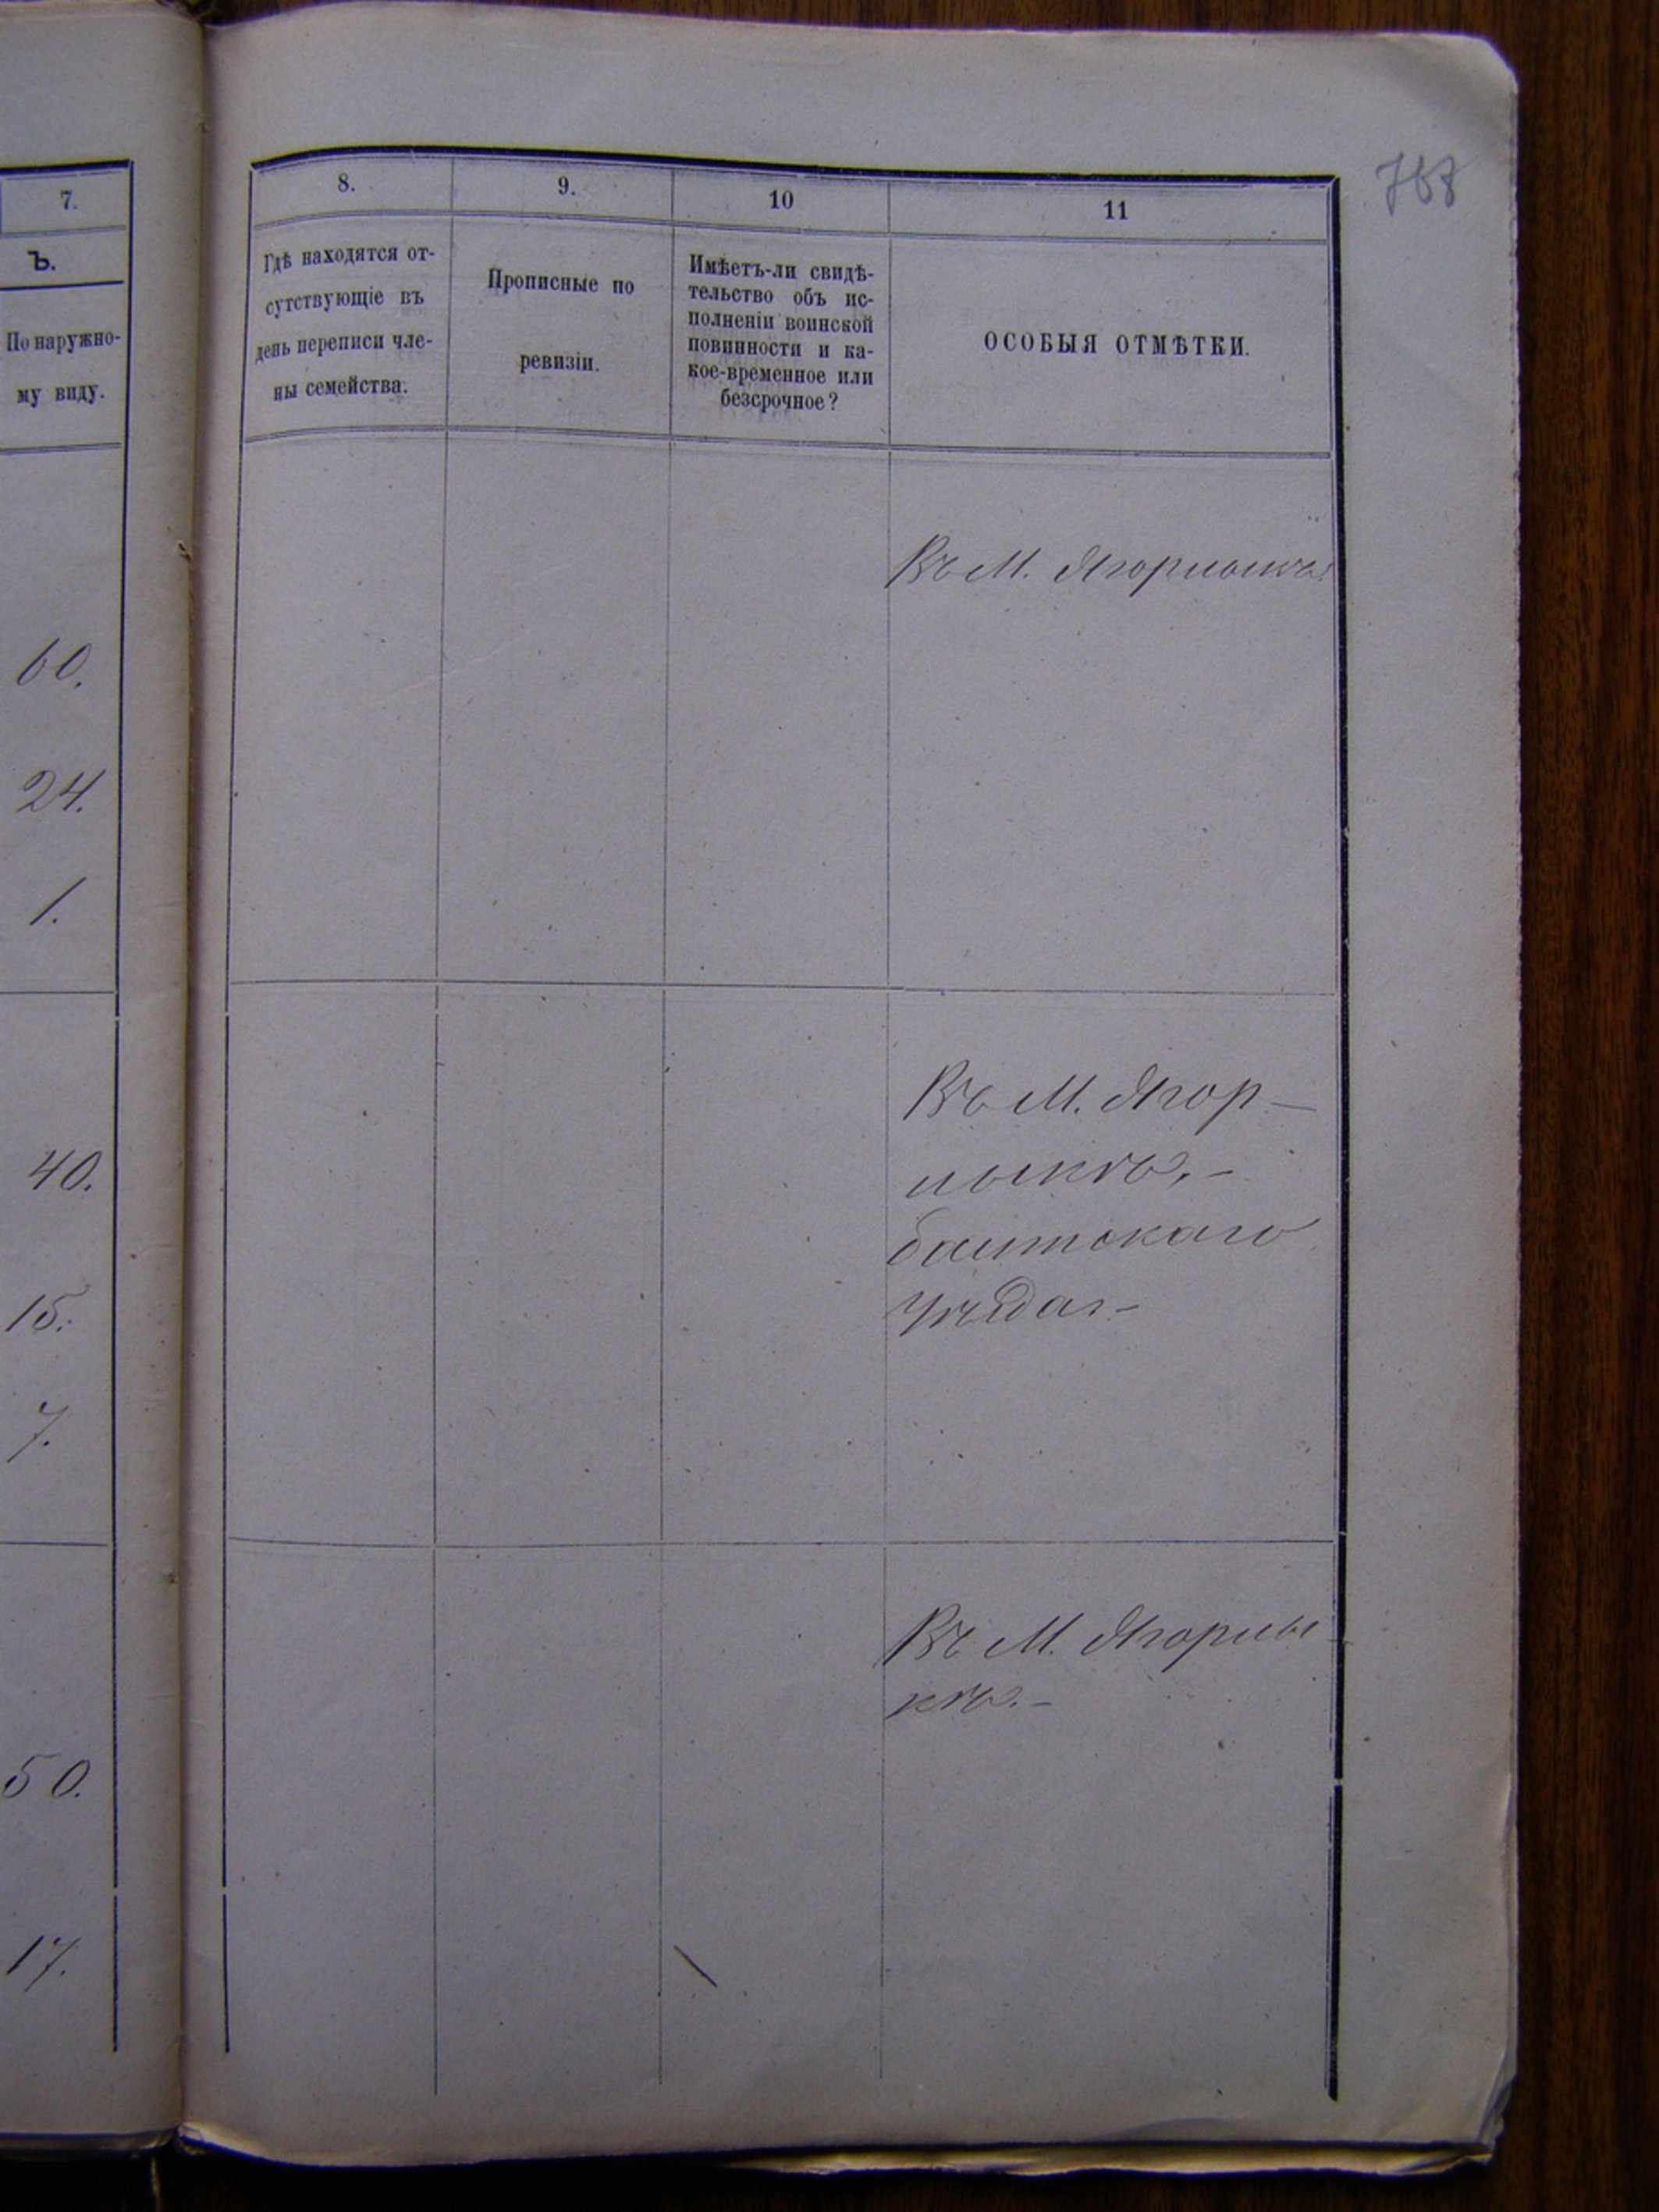 768
7.
Ъ.
По наружно-
му виду.
60.
24.
1.
40.
15.
7.
50.
17.
8.
9.
10
11
Гдѣ находятся от-
сутствующіе въ
день переписи чле-
ны семейства.
Прописные по
ревизіи.
Имѣетъ-ли свидѣ-
тельство объ ис-
полненіи воинской
повинности и ка-
кое-временное или
безсрочное?
ОСОБЫЯ ОТМѢТКИ.
Въ М. Ягорлыкѣ
Въ М. Ягор-
лыкѣ,-
балтскаго
уѣзда.-
Въ М. Ягорлы
кѣ.-